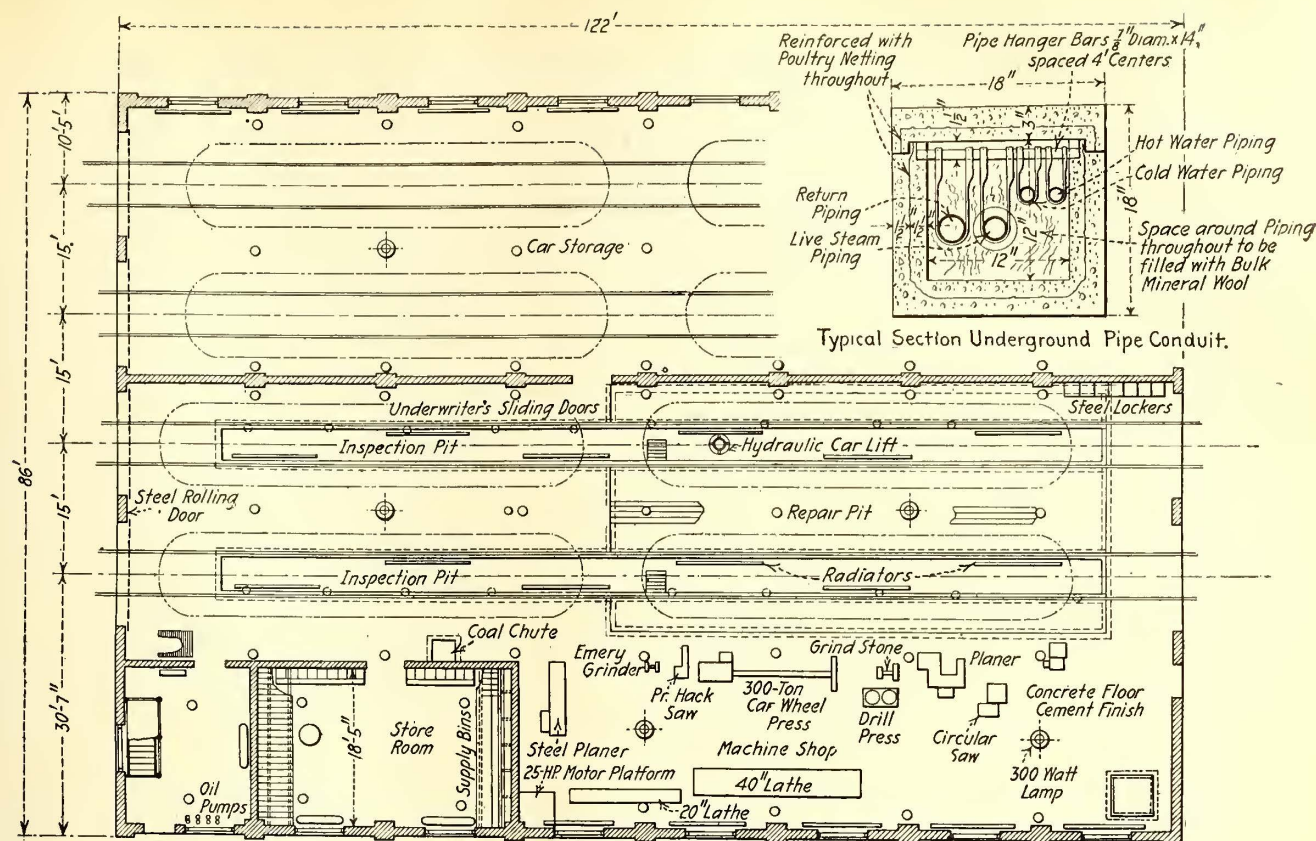 122'
Reinforced with
Poultry Netting
throughout
Pipe Hanger Bars 7/8" Diam. x 14",
spaced 4' Centers
18"
1 1/2"
3"
Hot Water Piping
Cold Water Piping
18"
Return
Piping
Live Steam
Piping
1 1/2"
1 1/2"
12"
12"
Space around Piping
throughout to be
filled with Bulk
Mineral Wool
Typical Section Underground Pipe Conduit.
86'
10'-5"
15'
15'
15'
30'-7"
Car Storage
Underwriter's Sliding Doors
Steel Lockers
Inspection Pit
Hydraulic Car Lift
Steel Rolling
Door
Repair Pit
Inspection Pit
Radiators
Coal Chute
Emery
Grinder
Pr. Hack
Saw
300-Ton
Car Wheel
Press
Grind Stone
Drill
Press
Planer
Circular
Saw
Concrete Floor
Cement Finish
300 Watt
Lamp
Store
Room
18'-5"
Supply Bins
Steel Planer
25-HP. Motor Platform
Machine Shop
40" Lathe
20" Lathe
Oil
Pumps